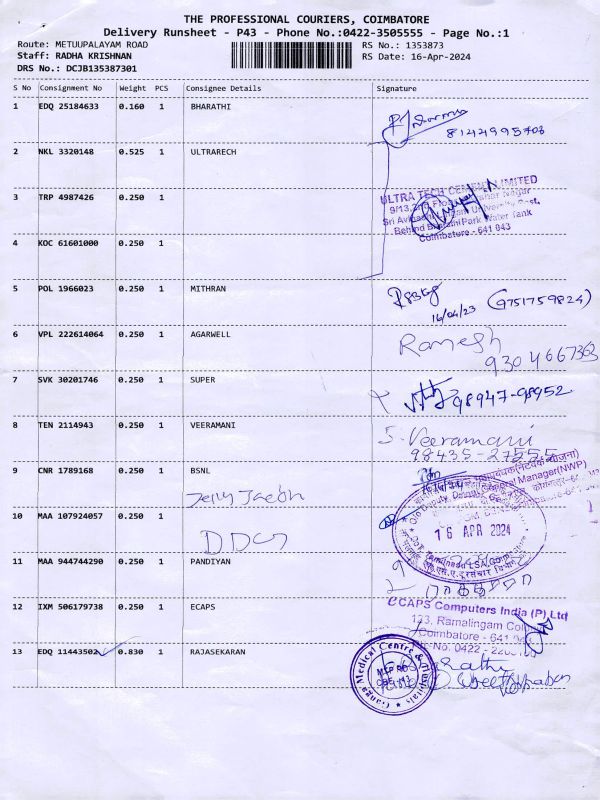 THE PROFESSIONAL COURIERS, COIMBATORE
Delivery Runsheet - P43 - Phone No.:0422-3505555 - Page No.:1
Route: METUUPALAYAM ROAD
RS No.: 1353873
Staff: RADHA KRISHNAN
RS Date: 16-Apr-2024
DRS No.: DCJB135387301
S No Consignment No Weight PCS Consignee Details Signature
1 EDQ 25184633 0.160 1 BHARATHI
8144995703
2 NKL 3320148 0.525 1 ULTRARECH
ULTRA TECH CEMENT LIMITED
3 TRP 4987426 0.250 1
Behind Bharathi Park Water Tank
Coimbatore - 641 043
4 KOC 61601000 0.250 1
5 POL 1966023 0.250 1 MITHRAN
16/04/23 (9751759824)
6 VPL 222614064 0.250 1 AGARWELL
Ramesh
9304667363
7 SVK 30201746 0.250 1 SUPER
98947-98952
8 TEN 2114943 0.250 1 VEERAMANI
S. Veeramani
98435-27555
9 CNR 1789168 0.250 1 BSNL
General Manager(NWP)
Jerry Jacob
10 MAA 107924057 0.250 1
DDG
16 APR 2024
11 MAA 944744290 0.250 1 PANDIYAN
Tamilnadu LSA
12 IXM 506179738 0.250 1 ECAPS
eCAPS Computers India (P) Ltd
123, Ramalingam
Coimbatore - 641
0422 -
13 EDQ 11443502 0.830 1 RAJASEKARAN
Ganga Medical Centre & Hospitals